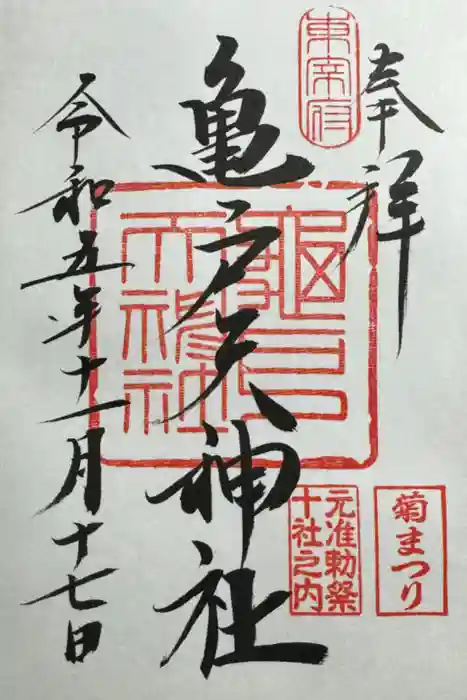 奉拝
東宰府
亀戸天神社
亀戸天神社
元准勅祭
十社之内
菊まつり
令和五年十一月十七日